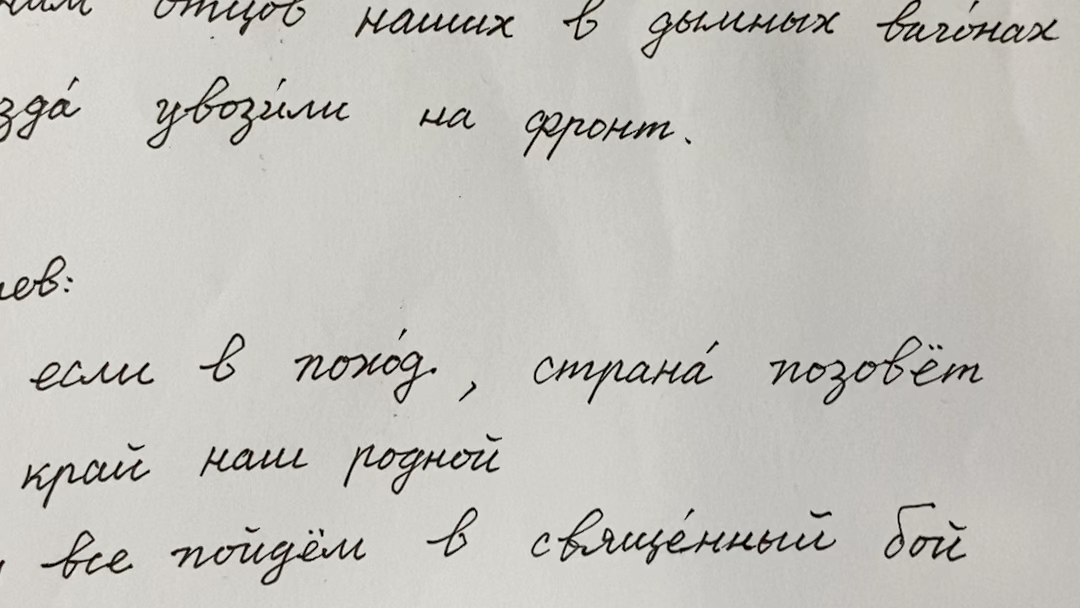 отцов наших в дымных ваго́нах
увози́ли на фронт.
если в похо́д, страна́ позовёт
край наш родной
все пойдём в свяще́нный бой